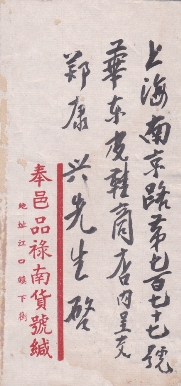 上海南京路第七百七十七號
華东皮鞋商店内呈交
郑康兴先生啓
奉邑品祿南貨號緘
地址江口鎮下街